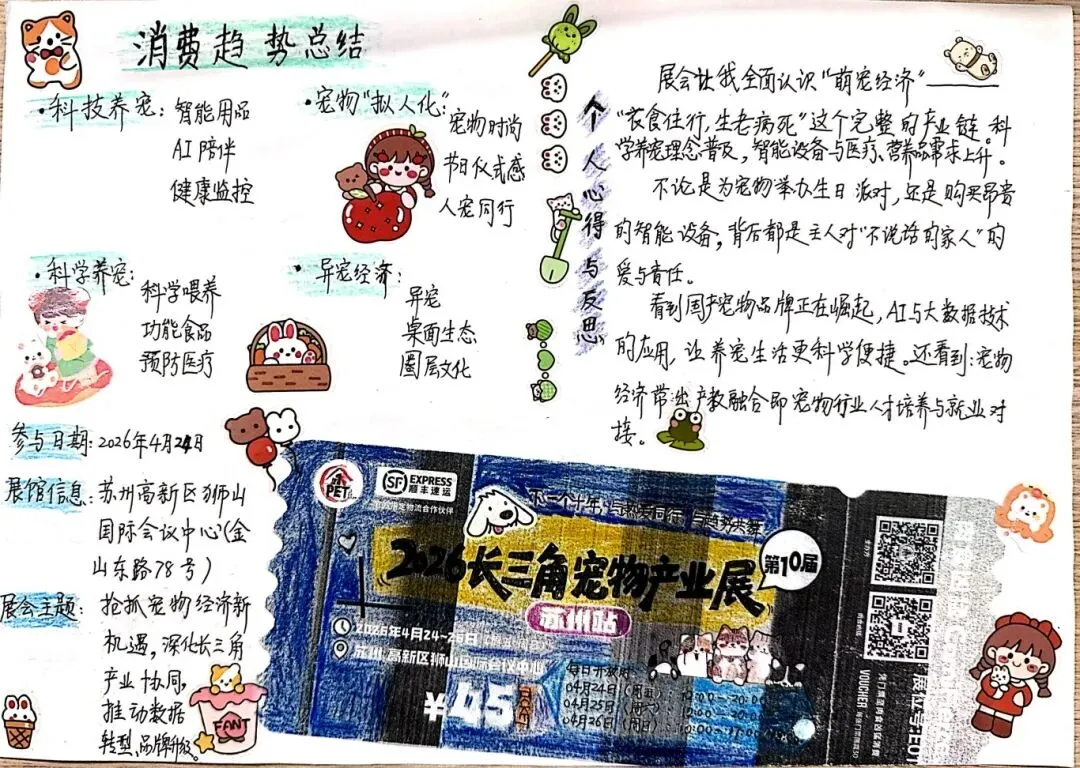 消费趋势总结
·科技养宠：智能用品
AI陪伴
健康监控
·宠物“拟人化”：
宠物时尚
节日仪式感
人宠同行
·科学养宠：
科学喂养
功能食品
预防医疗
·异宠经济：
异宠
桌面生态
圈层文化
个人心得与反思
展会让我全面认识“萌宠经济”——
“衣食住行，生老病死”这个完整的产业链。科
学养宠理念普及，智能设备与医疗、营养品需求上升。
不论是为宠物举办生日派对，还是购买昂贵
的智能设备，背后都是主人对“不说话的家人”的
爱与责任。
看到国产宠物品牌正在崛起，AI与大数据技术
的应用，让养宠生活更科学便捷。还看到：宠物
经济带出产教融合即宠物行业人才培养与就业对
接。
参与日期：2026年4月24日
展馆信息：苏州高新区狮山
国际会议中心（金
山东路78号）
展会主题：抢抓宠物经济新
机遇，深化长三角
产业协同，
推动数据
转型、品牌升级。
FANT
PET
SF EXPRESS
顺丰速运
下一个十年，与
2026长三角宠物产业展
第10届
苏州站
2026年4月24-26日
苏州高新区狮山国际会议中心
¥45
TICKET
每日开放时
04月24日（周五）
04月25日（周六）
04月26日（周日）
VOUCHER